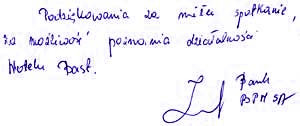 Podziękowania za miłe spotkanie,
za możliwość poznania działalności
Hotelu Bast.